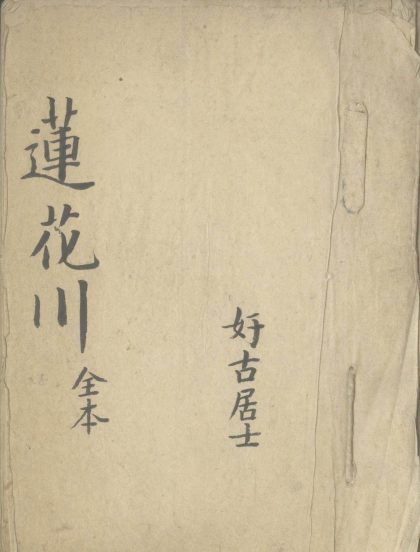 好古居士
蓮花川
全本